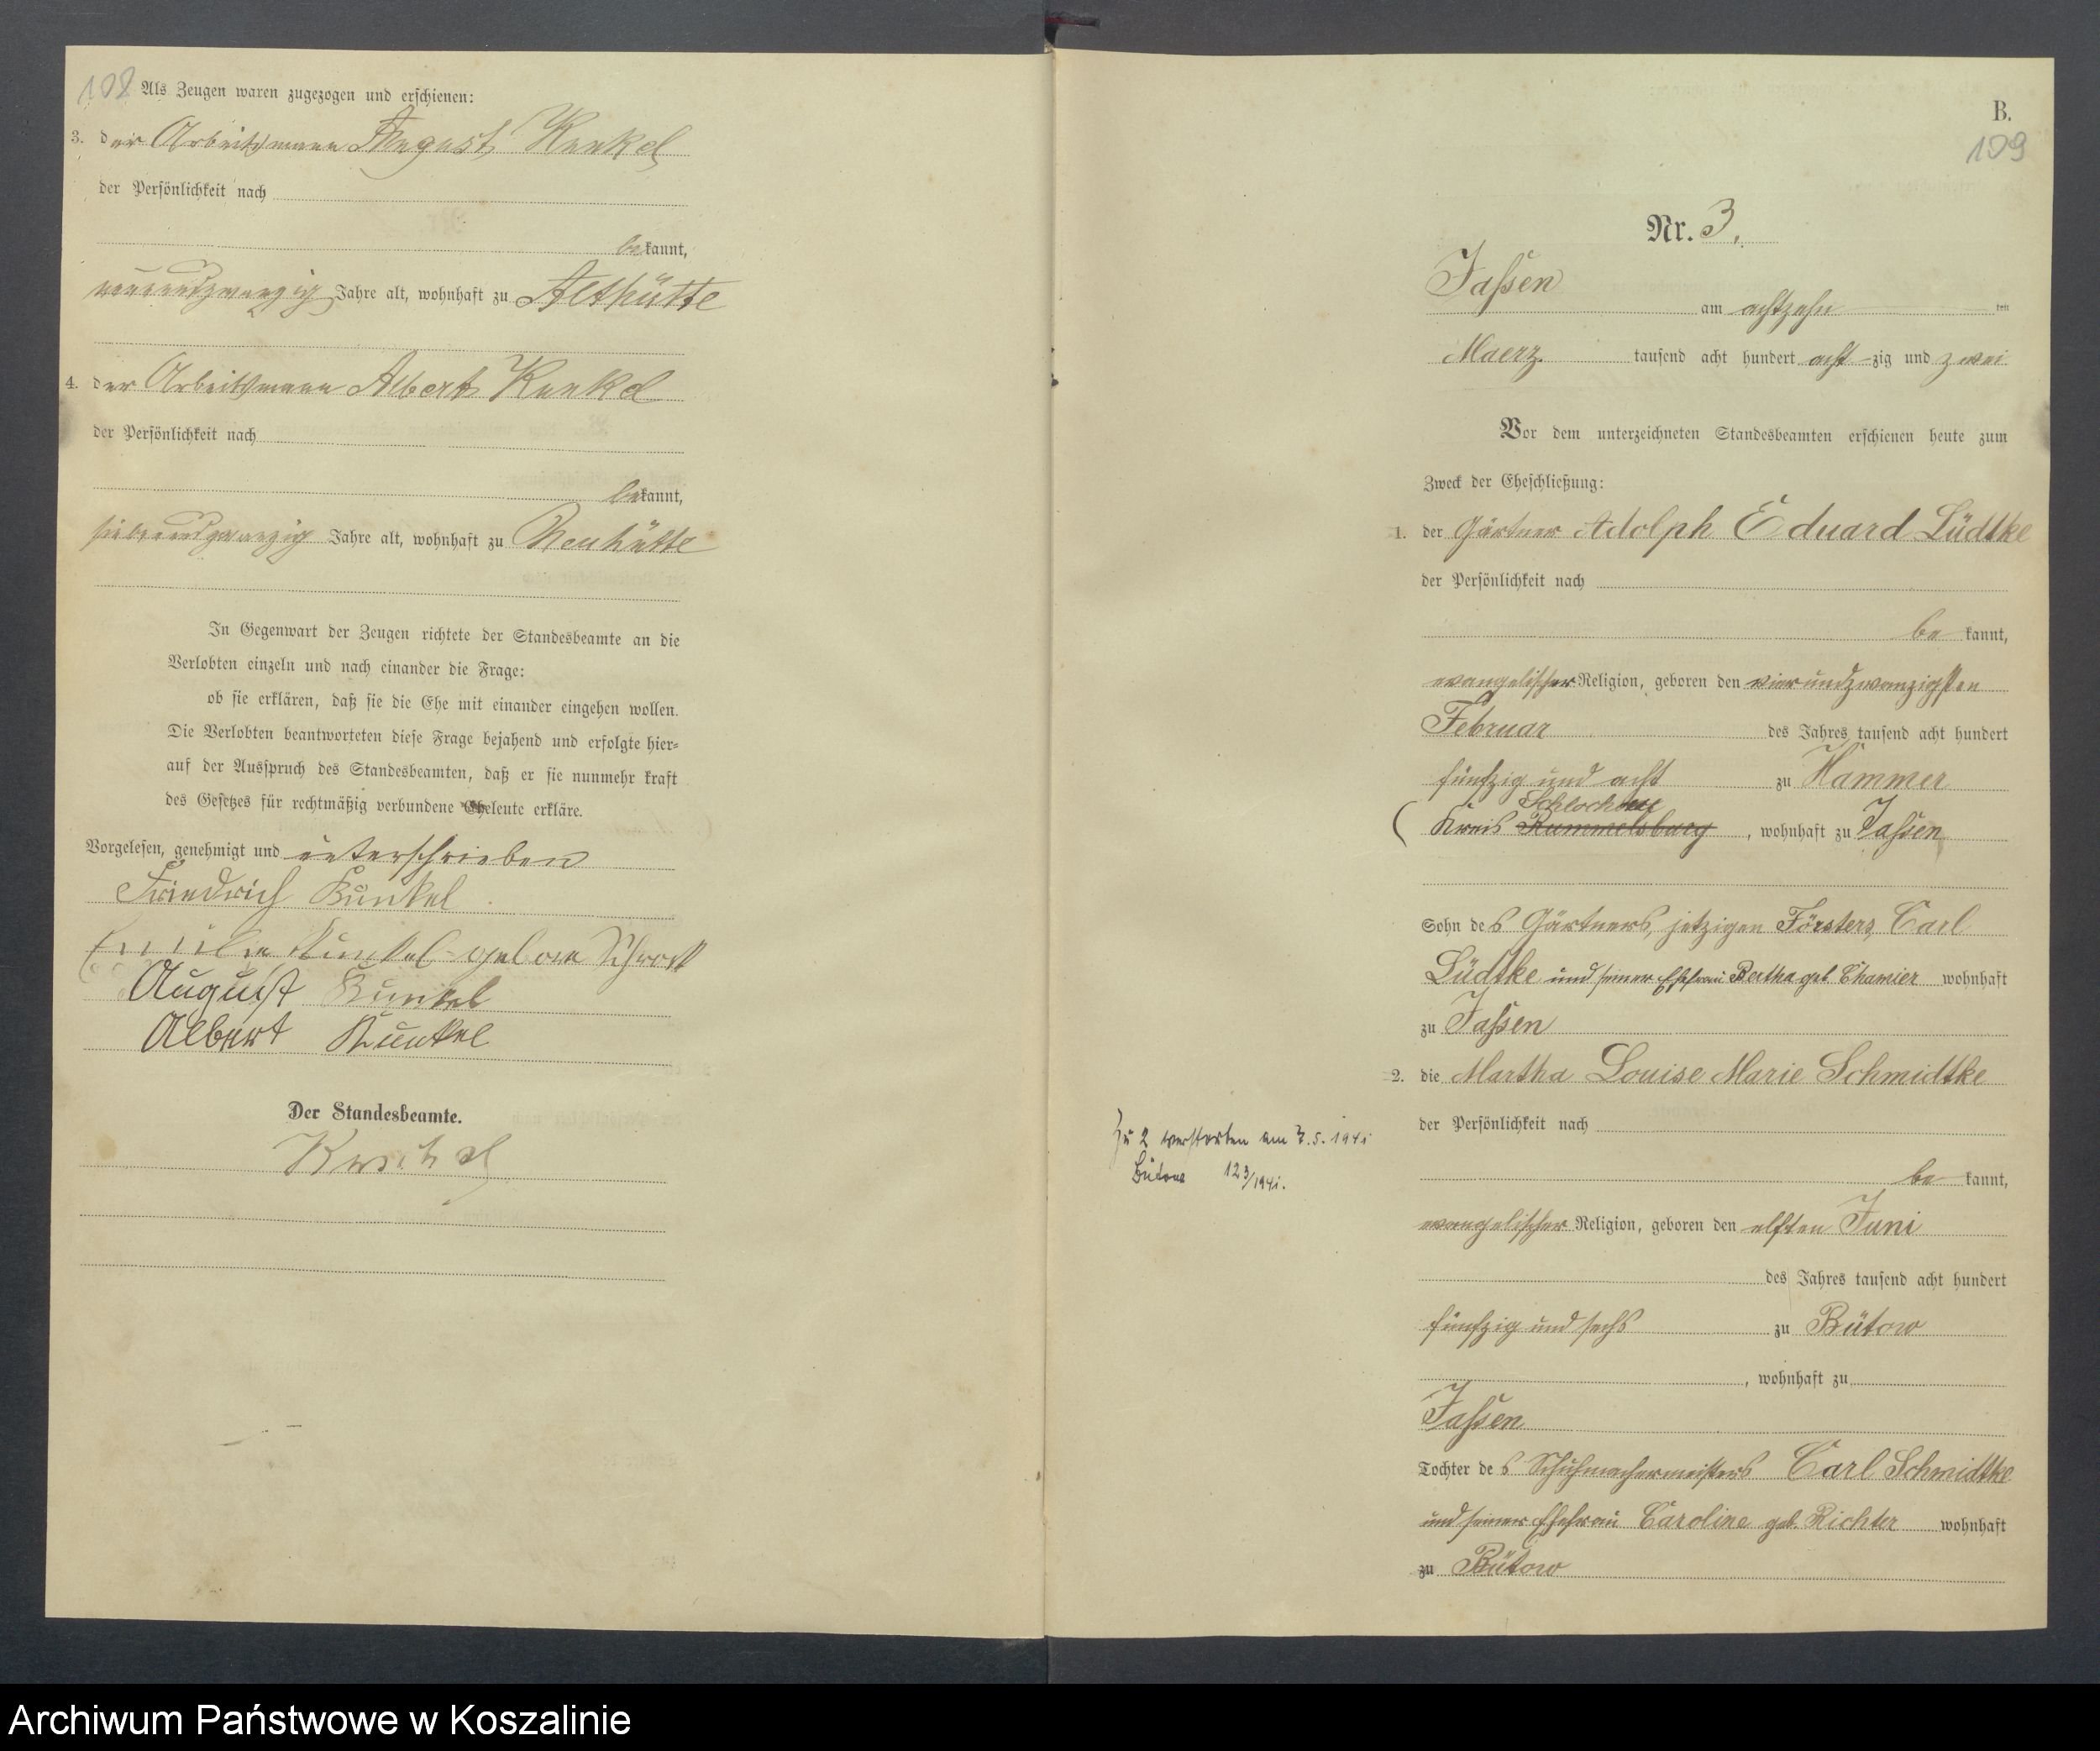 108
Als Zeugen waren zugezogen und erschienen:
3. der Arbeitsmann August Kunkel
der Persönlichkeit nach
bekannt,
neunundzwanzig Jahre alt, wohnhaft zu Althütte
4. der Arbeitsmann Albert Kunkel
der Persönlichkeit nach
bekannt,
siebenundzwanzig Jahre alt, wohnhaft zu Neuhütte
In Gegenwart der Zeugen richtete der Standesbeamte an die
Verlobten einzeln und nach einander die Frage:
ob sie erklären, daß sie die Ehe mit einander eingehen wollen.
Die Verlobten beantworteten diese Frage bejahend und erfolgte hier-
auf der Ausspruch des Standesbeamten, daß er sie nunmehr kraft
des Gesetzes für rechtmäßig verbundene Eheleute erkläre.
Vorgelesen, genehmigt und unterschrieben
Friedrich Kunkel
Emilie Kunkel geborne
August Kunkel
Albert Kunkel
Der Standesbeamte.
B.
109
Nr. 3.
Jassen am achtzehn ten
Maerz tausend acht hundert acht zig und zwei
Vor dem unterzeichneten Standesbeamten erschienen heute zum
Zweck der Eheschließung:
1. der Gärtner Adolph Eduard Lüdtke
der Persönlichkeit nach
be kannt,
evangelischer Religion, geboren den vierundzwanzigsten
Februar des Jahres tausend acht hundert
fünfzig und acht zu Hammer
Schlochau
Kreis Rummelsburg, wohnhaft zu Jassen
Sohn des Gärtners, jetzigen Försters, Carl
Lüdtke und seiner Ehefrau Bertha geb Chamier wohnhaft
zu Jassen
2. die Martha Louise Marie Schmidtke
der Persönlichkeit nach
be kannt,
Zu 2 verstorben am 3.5.1941
Bütow 123/1941.
evangelischer Religion, geboren den elften Juni
des Jahres tausend acht hundert
fünfzig und sechs zu Bütow
, wohnhaft zu
Jassen
Tochter des Schuhmachermeisters Carl Schmidtke
und seiner Ehefrau Caroline geb. Richter wohnhaft
zu Bütow
Archiwum Państwowe w Koszalinie